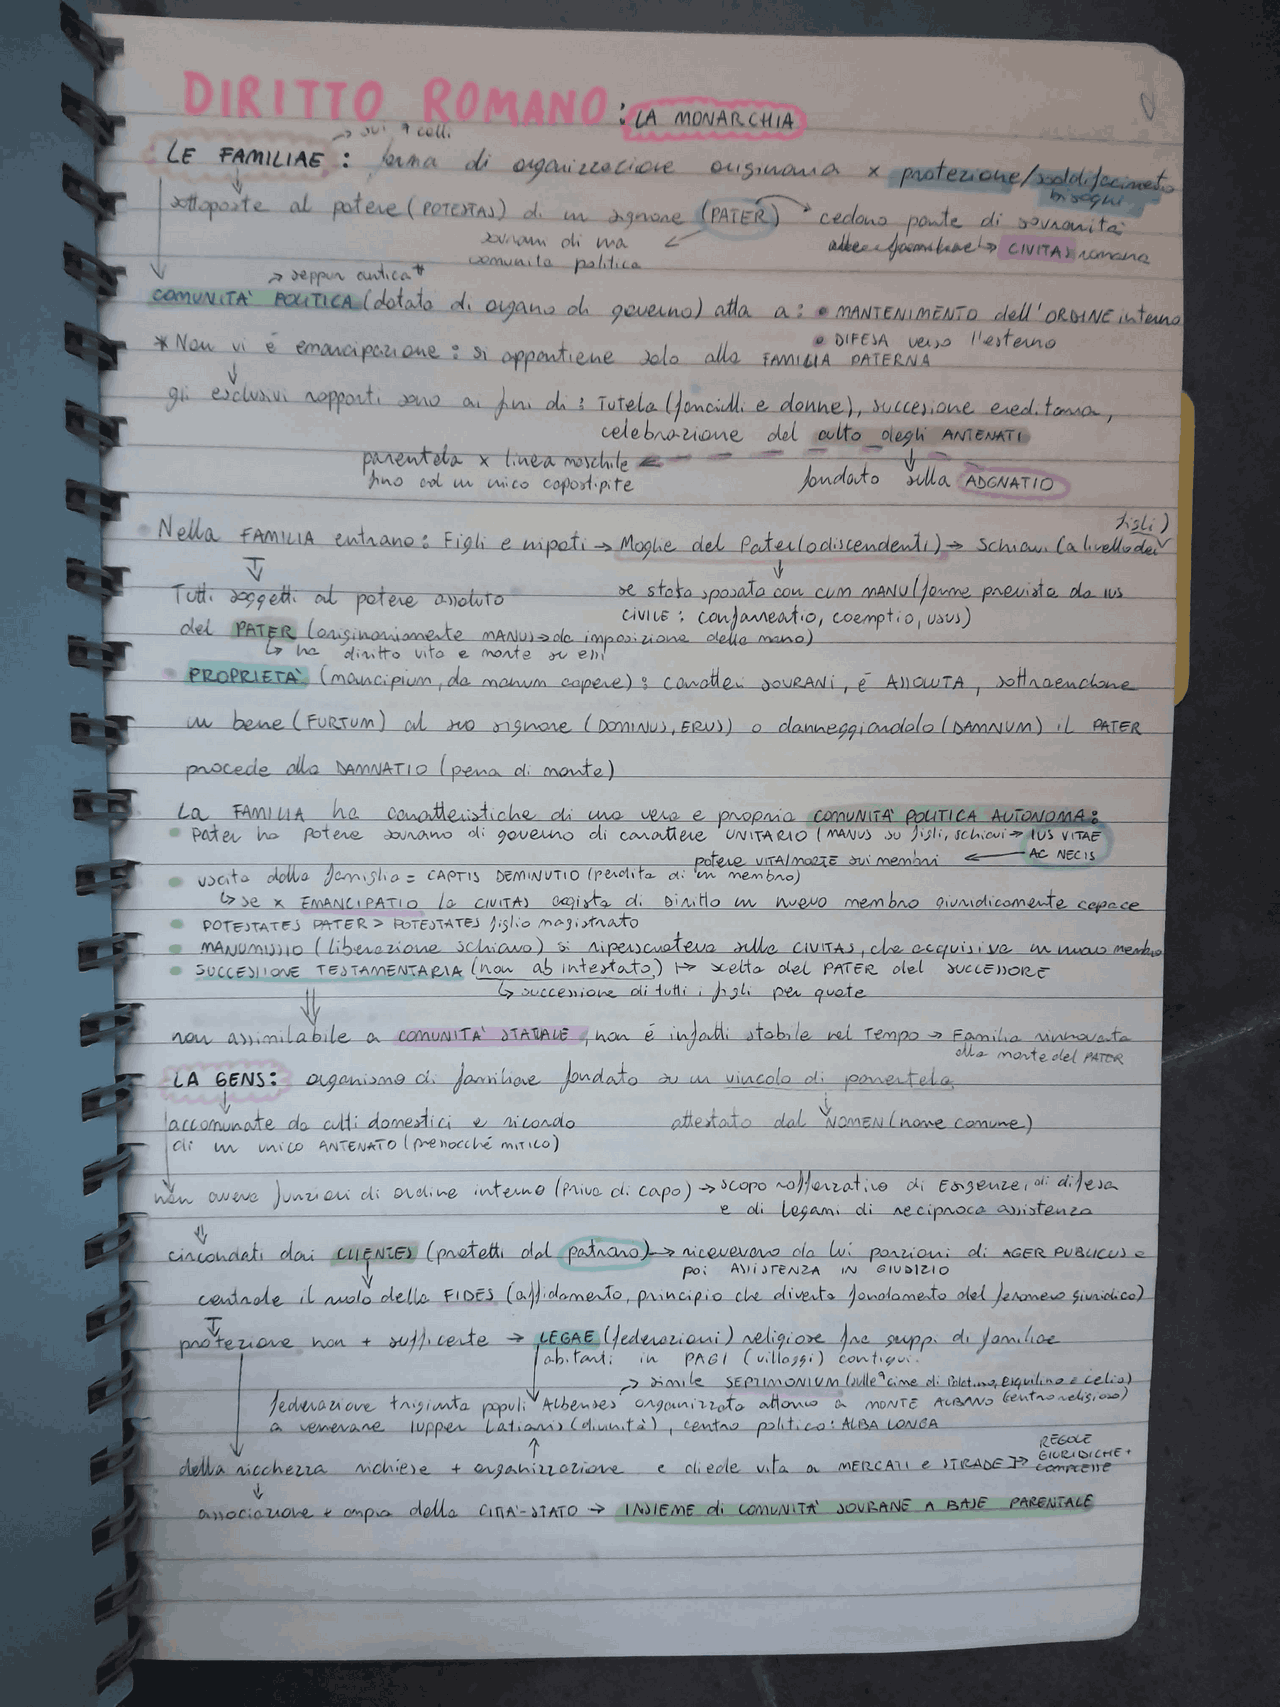 DIRITTO ROMANO: LA MONARCHIA
→ sui 7 colli
LE FAMILIAE: forma di organizzazione originaria x protezione/soddisfacimento bisogni
sottoposte al potere (POTESTAS) di un signore (PATER) → cedono parte di sovranità
sovrani di una comunità politica
→ CIVITAS romana
→ seppur antica*
COMUNITA' POLITICA (dotata di organo di governo) atta a: • MANTENIMENTO dell'ORDINE interno
• DIFESA verso l'esterno
*Non vi é emancipazione: si appartiene solo alla FAMILIA PATERNA
gli esclusivi rapporti sono ai fini di: Tutela (fanciulli e donne), successione ereditaria,
celebrazione del culto degli ANTENATI
parentela x linea maschile
fino ad un unico capostipite
fondato sulla ADGNATIO
• Nella FAMILIA entrano: Figli e nipoti → Moglie del Pater (o discendenti) → Schiavi (a livello dei figli)
Tutti soggetti al potere assoluto
del PATER (originariamente MANUS → da imposizione della mano)
↳ ha diritto vita e morte su essi
se stata sposata con CUM MANU/forme previste da IUS
CIVILE: confarreatio, coemptio, usus)
• PROPRIETA' (mancipium, da manum capere): caratteri SOVRANI, é ASSOLUTA, sottraendone
un bene (FURTUM) al suo signore (DOMINUS, ERUS) o danneggiandolo (DAMNUM) il PATER
procede alla DAMNATIO (pena di morte)
La FAMILIA ha caratteristiche di una vera e propria COMUNITA' POLITICA AUTONOMA:
• Pater ha potere sovrano di governo di carattere UNITARIO (MANUS su figli, schiavi → IUS VITAE
AC NECIS
potere VITA/MORTE sui membri ←
• uscita dalla famiglia = CAPTIS DEMINUTIO (perdita di un membro)
↳ se x EMANCIPATIO la CIVITAS acquista di Diritto un nuovo membro giuridicamente capace
• POTESTATES PATER > POTESTATES figlio magistrato
• MANUMISSIO (liberazione schiavo) si ripercuoteva sulla CIVITAS, che acquisiva un nuovo membro
• SUCCESSIONE TESTAMENTARIA (non ab intestato) ↦ scelta del PATER del SUCCESSORE
↳ successione di tutti i figli per quote
non assimilabile a COMUNITA' STATALE, non é infatti stabile nel Tempo → Familia rinnovata
alla morte del PATER
LA GENS: organismo di familiae fondato su un vincolo di parentela
accomunate da culti domestici e ricordo
di un unico ANTENATO (perlocché MITICO)
attestato dal NOMEN (nome comune)
non aveva funzioni di ordine interno (Priva di capo) → scopo rafforzativo di Esigenze di difesa
e di legami di reciproca assistenza
circondati dai CLIENTES (protetti dal patrono) → ricevevano da lui porzioni di AGER PUBLICUS e
poi ASSISTENZA IN GIUDIZIO
centrale il ruolo della FIDES (affidamento, principio che diventa fondamento del fenomeno giuridico)
protezione non + sufficiente → LEGAE (federazioni) religiose fra gruppi di familiae
abitanti in PAGI (villaggi) contigui.
→ simile SEPTIMONIUM (sulle 7 cime di Palatino, Esquilino e Celio)
federazione triginta populi Albenses organizzata attorno a MONTE ALBANO (centro religioso)
a venerare Iupper Latiaris (divinità), centro politico: ALBA LONGA
della ricchezza richiese + organizzazione e diede vita a MERCATI e STRADE → REGOLE
GIURIDICHE +
COMPLESSE
associazione + ampia della CITTA'-STATO → INSIEME di COMUNITA' SOVRANE A BASE PARENTALE